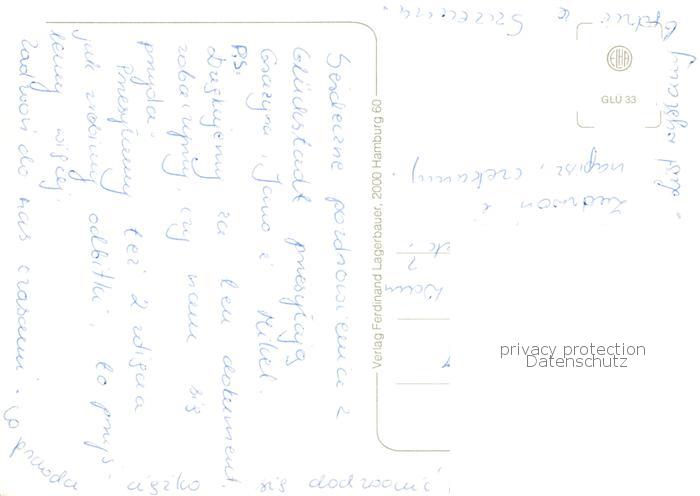 Serdeczne pozdrowienia z
Glückstadt przesyłają
Grażyna, Jano i Michał.
P.S.
Dziękujemy za ten dokument
zobaczymy, czy nam się
przyda.
Przesyłamy też 2 zdjęcia
jak zrobimy odbitki, to przyś-
lemy więcej.
Zadzwoń do nas czasami.
się
Zadzwoń i
napisz, czekamy.
Szczecinie.
List wysłany
będzie w
Verlag Ferdinand Lagerbauer, 2000 Hamburg 60
GLÜ 33
privacy protection
Datenschutz